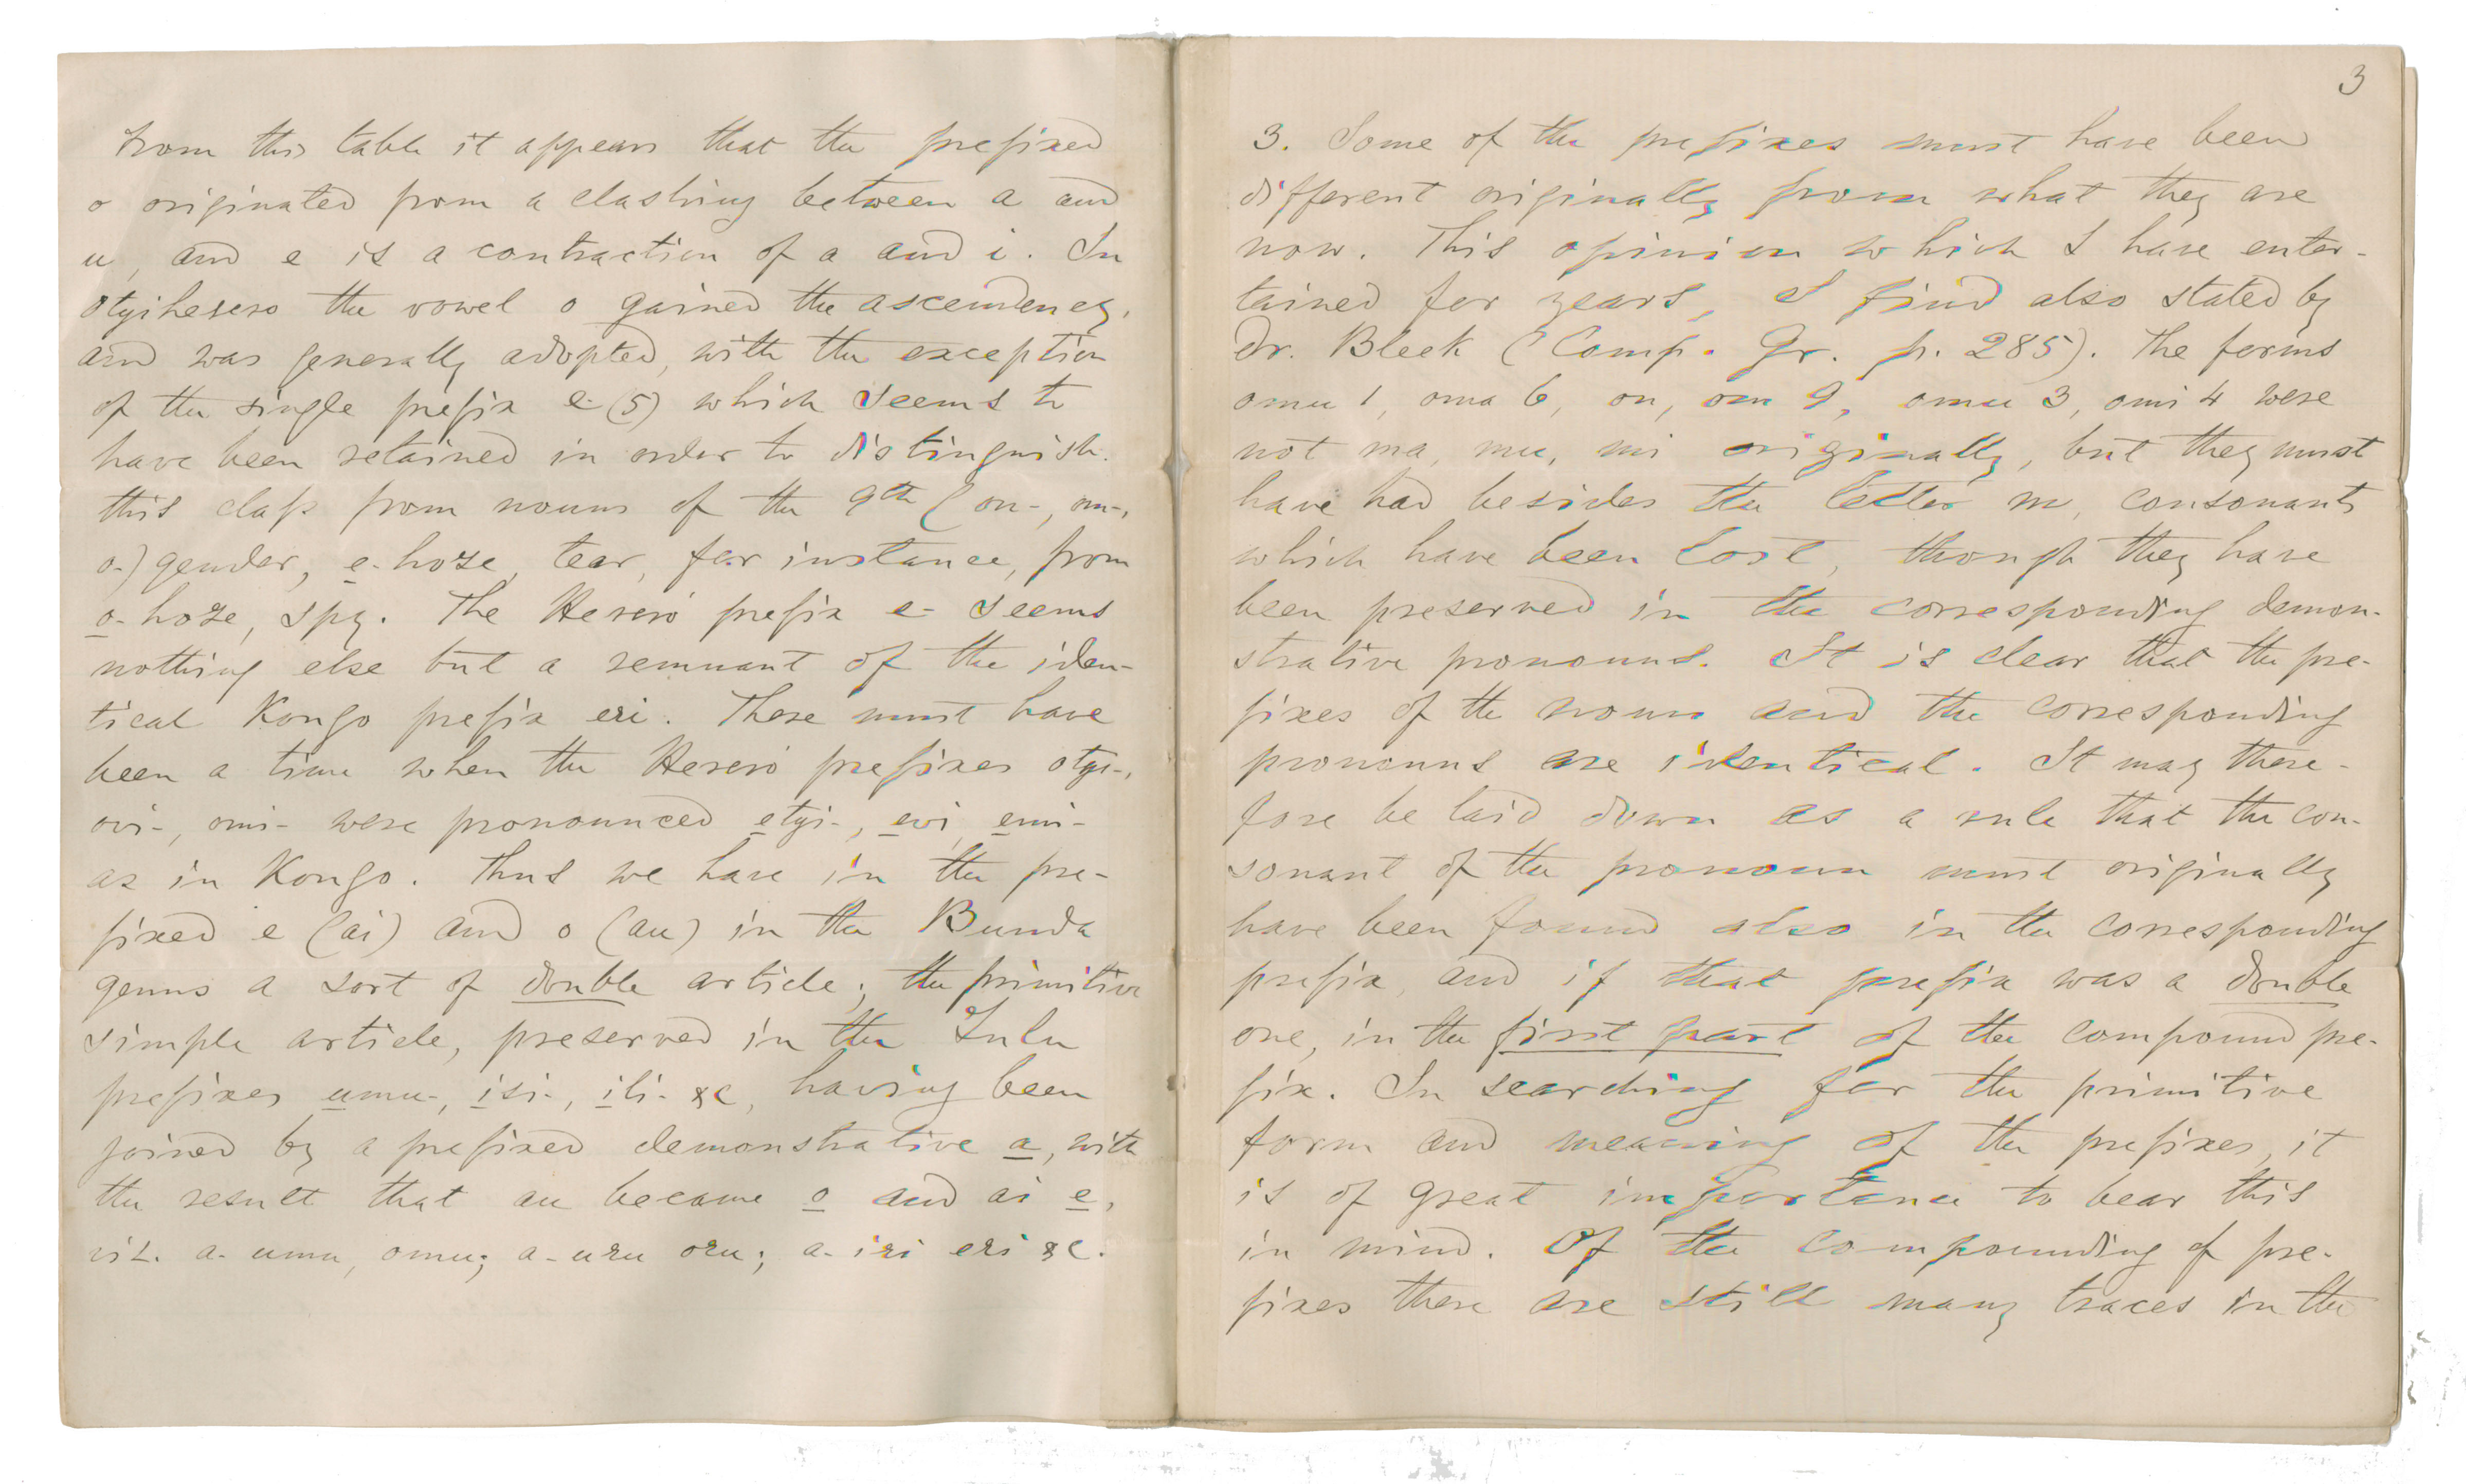 From this table it appears that the prefixed
o originated from a clashing between a and
u, and e is a contraction of a and i. In
Otyiherero the vowel o gained the ascendency,
and was generally adopted, with the exception
of the single prefix e-(5) which seems to
have been retained in order to distinguish
this class from nouns of the 9th (on-, om-,
o-) gender, e-hoze, tear, for instance, from
o-hoze, spy. The Hereró prefix e- seems
nothing else but a remnant of the iden-
tical Kongo prefix eri. There must have
been a time when the Hereró prefixes otyi-,
ovi-, omi- were pronounced etyi-, evi, emi-
as in Kongo. Thus we have in the pre-
fixed e (ai) and o (au) in the Bunda
genus a sort of double article; the primitive
simple article, preserved in the Zulu
prefixes umu-, isi-, ili- &c, having been
joined by a prefixed demonstrative a, with
the result that au became o and ai e,
viz. a-umu, omu; a-uru oru; a-iri eri &c.
3
3. Some of the prefixes must have been
different originally from what they are
now. This opinion which I have enter-
tained for years, I find also stated by
Dr. Bleek (Comp. Gr. p. 285). The forms
omu 1, oma 6, on, om 9, omu 3, omi 4 were
not ma, mu, mi originally, but they must
have had besides the letter m, consonants
which have been lost, though they have
been preserved in the corresponding demon-
strative pronouns. It is clear that the pre-
fixes of the noun and the corresponding
pronouns are identical. It may there-
fore be laid down as a rule that the con-
sonant of the pronoun must originally
have been found also in the corresponding
prefix, and if that prefix was a double
one, in the first part of the compound pre-
fix. In searching for the primitive
form and meaning of the prefixes, it
is of great importance to bear this
in mind. Of the compounding of pre-
fixes there are still many traces in the